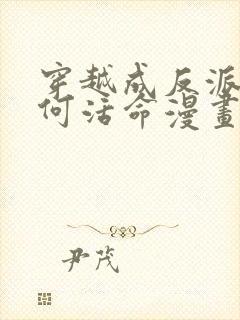 穿越成反派
何活命漫畫
尹茂